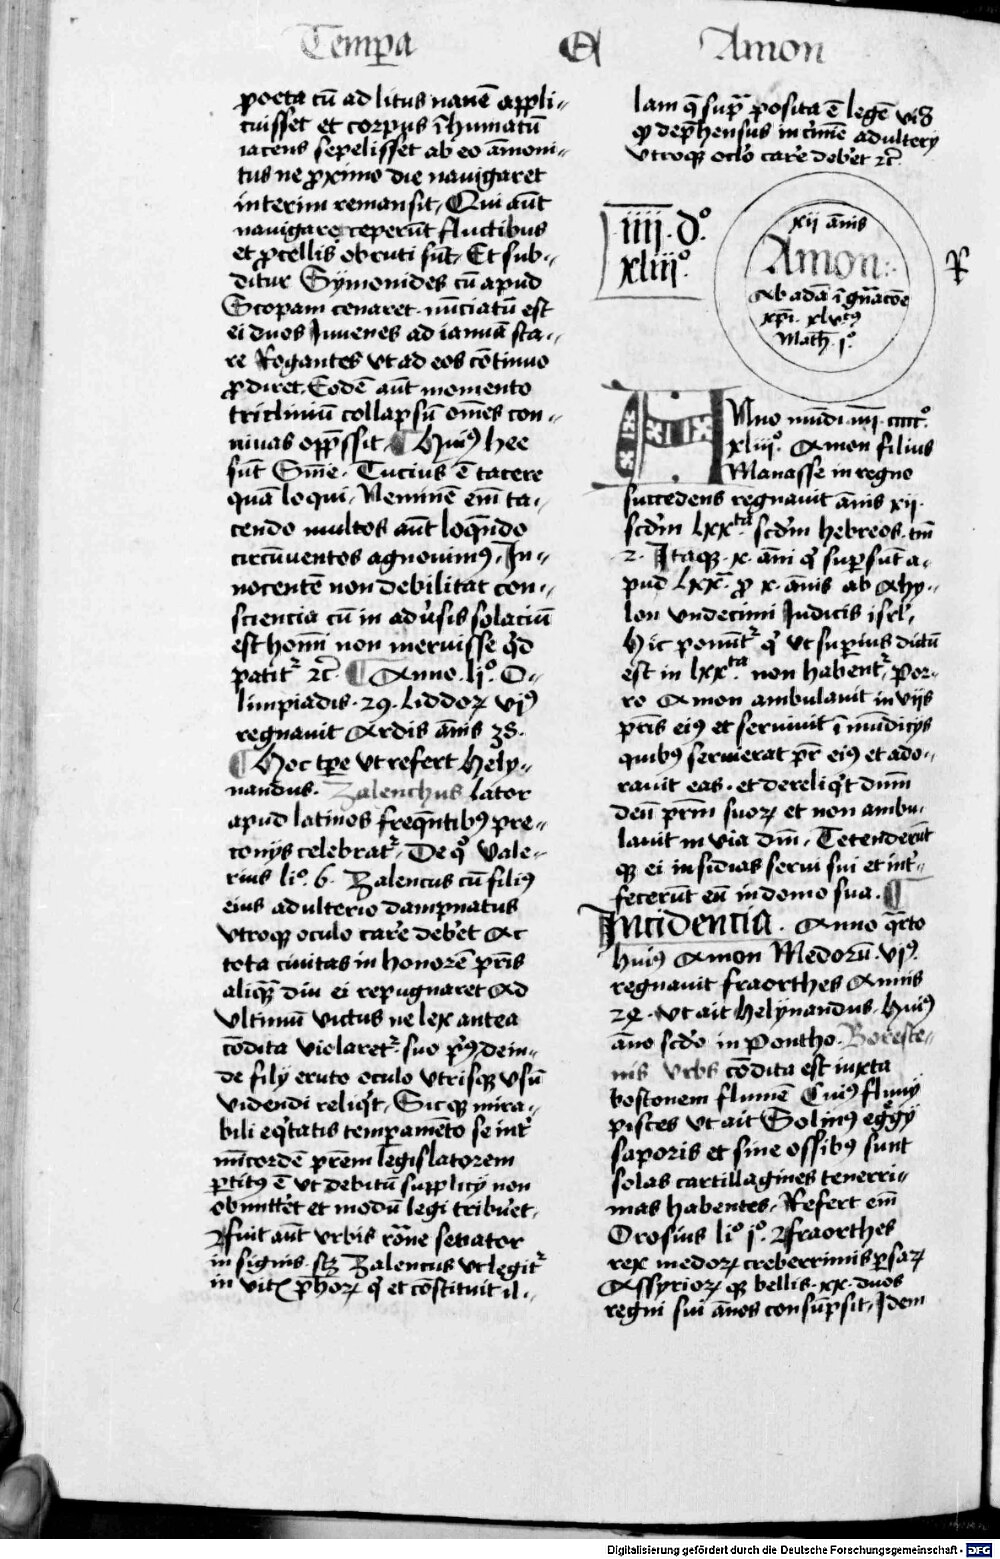 Temꝑa A Amon
poeta cū ad litus nauē appli⸗
cuisset et corpus īhumatū
iacens sepelisset ab eo āmoni⸗
tus ne ꝓximo die nauigaret
interim remansit, Qui aūt
nauigare ceperūt fluctibus
et ꝓcellis obruti sūt, Et sub⸗
ditur Symonides cū apud
Scopam cenaret nūciatū est
ei duos Juuenes ad ianuā sta⸗
re Rogantes vt ad eos cōtinuo
ꝓdiret, Eodē aūt momento
tricliniū collapsū oīnes con⸗
niuas opp̄ssit, ¶ Huiꝰ hee
sūt Sn̄ie. Tucius ē tacere
quā loqui, Neminē em̄ ta⸗
cendo multos aūt loq̄ndo
circūuentos agnouimꝰ, In⸗
nocentē non debilitat con⸗
sciencia cū in adūsis solaciū
est homī non meruisse qd̄
patitᷣ ⁊c̄. ¶ Anno lj.º O⸗
limpiadis .29. Liddoꝝ vjꝰ
regnauit Ardis ānis 38.
¶ Hoc tꝑe vt refert Hely⸗
nandus. Zalenchus lator
apud latinos freq̄ntibꝰ pre⸗
conijs celebratᷣ, De qº Vale⸗
rius liº. 6. Zalencus cū filiꝰ
eius adulterio dampnatus
vtroqꝫ oculo car̄e deb̄et Ac
tota ciuitas in honorē pr̄is
aliqᷓ diu ei repugnaret Ad
vltimū victus ne lex antea
cōdita violaretᷣ suo pͥꝰ, dein⸗
de filij eruto oculo vtrisqꝫ vsū
videndi reliqͥt, Sicqꝫ mira⸗
bili eqͥtatis temꝑamēto se int̄
mīcordē pr̄em legislatorem
ꝑtitꝰ ē vt debitū supplicij non
obmitt̄et et modū legi tribūet,
Fuit aūt vrbis rōne senator
insignis sꝫ Zalencus vt legitᷣ
in vita ph̄oꝝ qͥ et cōstituit il⸗
lam q̄ supᷓ posita ē legē vi3
ꝙ dep̄hensus in cͥmīe adulterij
vtroqꝫ oclo car̄e deb̄et ⁊c̄
iiij. d.º
xliij.º
xij ānis
Amon:
Ab adā ī gn̄acōe
xp̄i. xlvᵗꝰ
Math̄. jº.
ANno mūdi iiij. cccc.º
xliijº. Amon filius
Manasse in regno
succedens regnauit ānis xij.
scd̄m lxxᵗᵃ. scd̄m hebreos. tm̄
2. Itaqꝫ .x. āni qͥ supersūt a⸗
pud Lxx̄. ꝓ x. ānis ab Ahy⸗
lon vndecimi Judicis isrl̄,
Hic ponūtᷣ qͥ vt supius dictū
est in lxxᵗᵃ. non habentᷣ, Por⸗
ro Amon ambulauit in vijs
pr̄is eiꝰ et seruiuit ī mūdicijs
quibꝰ seruierat pr̄ eiꝰ et ado⸗
rauit eas. et dereliqͥt dn̄m
deū pr̄m suoꝝ et non ambu⸗
lauit in via dn̄i, Tetenderūt
qꝫ ei insidias serui sui et int̄⸗
fecerūt eū in domo sua. ¶
Incidencia. Anno q̄rto
huiꝰ Amon Medorū. vjꝰ.
regnauit fraorthes Annis
24. vt ait helynandus. huiꝰ
āno scd̄o in Pontho. Boreste⸗
nis vrbs cōdita est iuxta
bostonem flumē Cuiꝰ fluuij
pisces vt ait Solinꝰ egregij
saporis et sine ossibꝰ sunt
solas cartillagines tenerri⸗
mas habentes, Refert em̄
Orosius liº jº. Fraorthes
rex medoꝝ creberrimis ꝑsaꝝ
Assyrioꝝ qꝫ bellis. xx. duos
regni sui ānos consūpsit, Idem
Digitalisierung gefördert durch die Deutsche Forschungsgemeinschaft - DFG